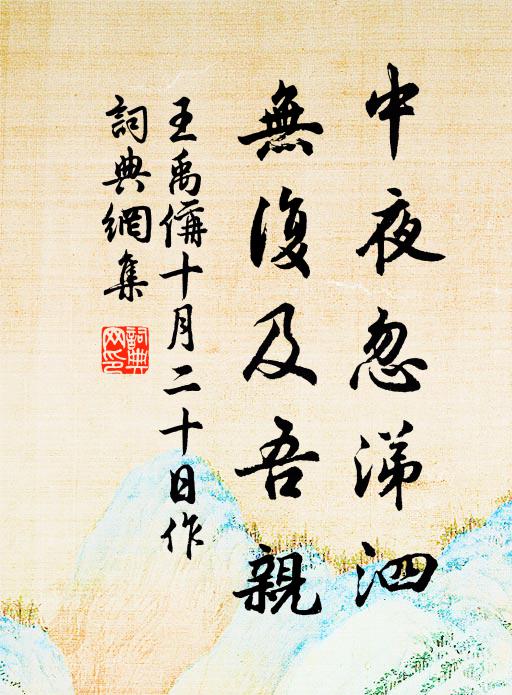 中夜忽涕泗
無復及吾親
王禹偁十月二十日作
詞典網集
詞典網印